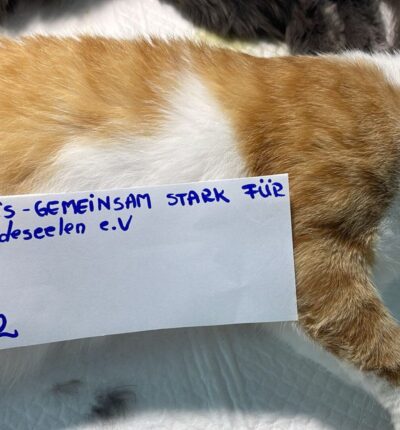 is - GEMEiNSAM STARK FÜR
deseelen e.V
2